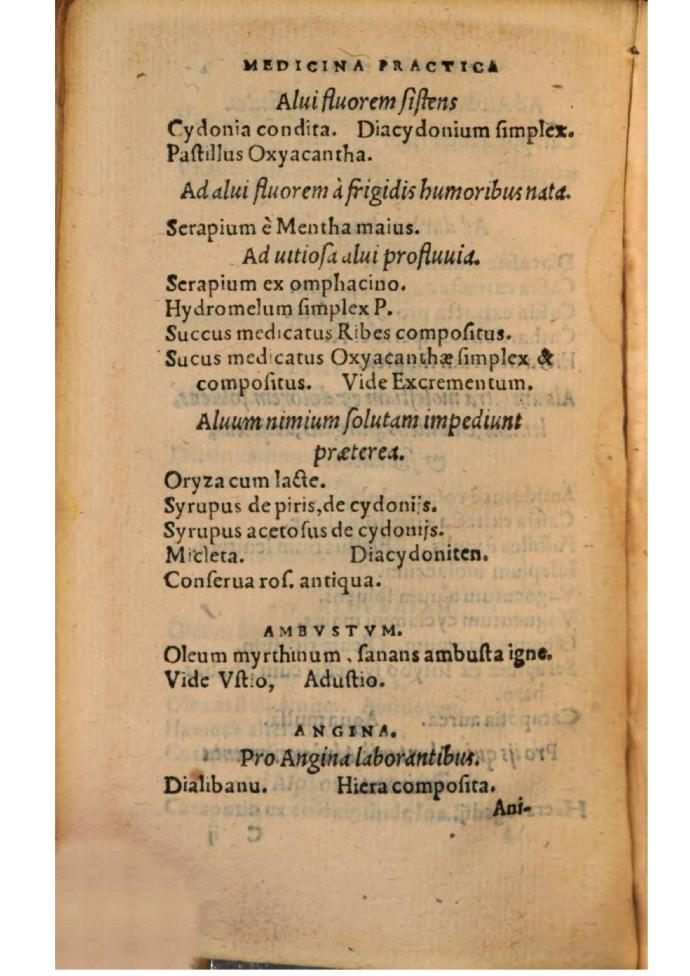 MEDICINA PRACTICA
Alui fluorem ſiſtens
Cydonia condita. Diacydonium ſimplex.
Paſtillus Oxyacantha.
Ad alui fluorem à frigidis humoribus nata.
Serapium è Mentha maius.
Ad uitioſa alui profluuia.
Serapium ex omphacino.
Hydromelum ſimplex P.
Succus medicatus Ribes compoſitus.
Sucus medicatus Oxyacanthæ ſimplex &
compoſitus. Vide Excrementum.
Aluum nimium ſolutam impediunt
præterea.
Oryza cum lacte.
Syrupus de piris, de cydonijs.
Syrupus acetoſus de cydonijs.
Micleta. Diacydoniten.
Conſerua roſ. antiqua.
AMBVSTVM.
Oleum myrthinum, ſanans ambuſta igne.
Vide Vſtio, Aduſtio.
ANGINA.
Pro Angina laborantibus.
Dialibanu. Hiera compoſita.
Ani-